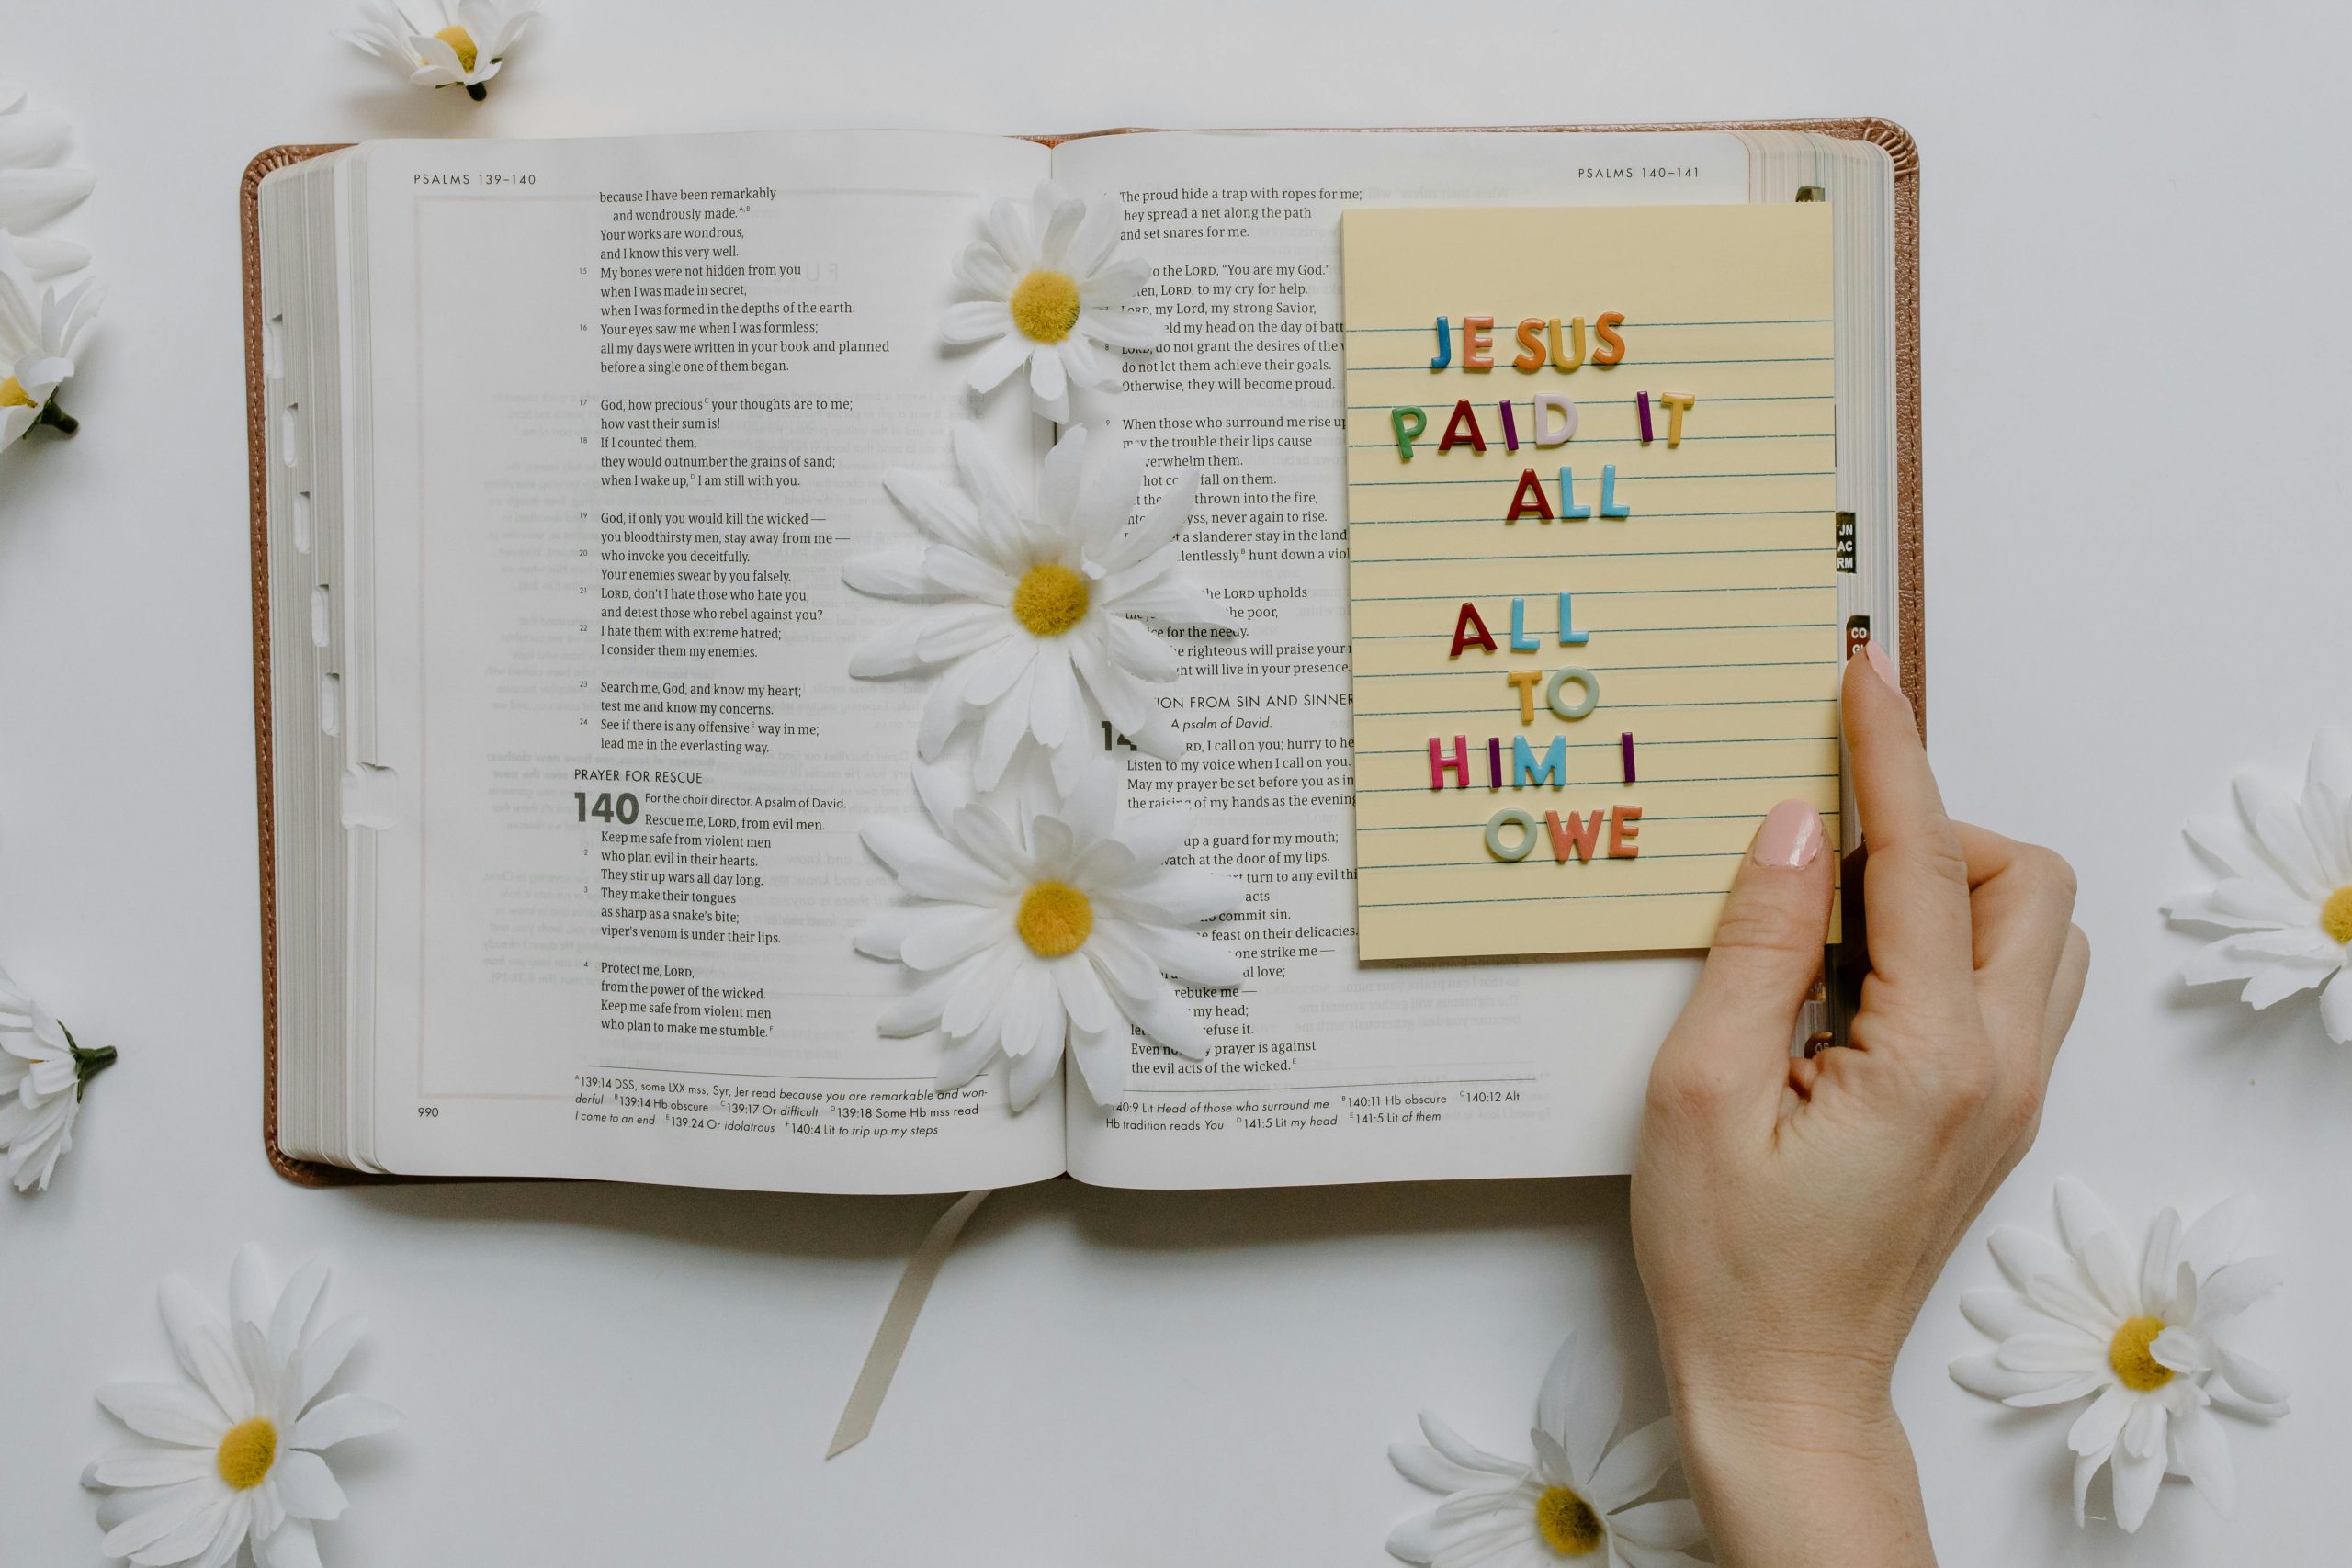 PSALMS 139–140
because I have been remarkably
and wondrously made.A,B
Your works are wondrous,
and I know this very well.
15 My bones were not hidden from you
when I was made in secret,
when I was formed in the depths of the earth.
16 Your eyes saw me when I was formless;
all my days were written in your book and planned
before a single one of them began.
17 God, how preciousC your thoughts are to me;
how vast their sum is!
18 If I counted them,
they would outnumber the grains of sand;
when I wake up,D I am still with you.
19 God, if only you would kill the wicked —
you bloodthirsty men, stay away from me —
20 who invoke you deceitfully.
Your enemies swear by you falsely.
21 LORD, don't I hate those who hate you,
and detest those who rebel against you?
22 I hate them with extreme hatred;
I consider them my enemies.
23 Search me, God, and know my heart;
test me and know my concerns.
24 See if there is any offensiveE way in me;
lead me in the everlasting way.
PRAYER FOR RESCUE
140 For the choir director. A psalm of David.
Rescue me, LORD, from evil men.
Keep me safe from violent men
2 who plan evil in their hearts.
They stir up wars all day long.
3 They make their tongues
as sharp as a snake's bite;
viper's venom is under their lips.
4 Protect me, LORD,
from the power of the wicked.
Keep me safe from violent men
who plan to make me stumble.F
A139:14 DSS, some LXX mss, Syr, Jer read because you are remarkable and won-
derful B139:14 Hb obscure C139:17 Or difficult D139:18 Some Hb mss read
I come to an end E139:24 Or idolatrous F140:4 Lit to trip up my steps
990
PSALMS 140–141
The proud hide a trap with ropes for me;
hey spread a net along the path
and set snares for me.
o the LORD, "You are my God."
ten, LORD, to my cry for help.
LORD, my Lord, my strong Savior,
eld my head on the day of batt
8 LORD, do not grant the desires of the
do not let them achieve their goals.
Otherwise, they will become proud.
9 When those who surround me rise up
may the trouble their lips cause
verwhelm them.
hot co fall on them.
t the thrown into the fire,
yss, never again to rise.
t a slanderer stay in the land
lentlesslyB hunt down a viol
the LORD upholds
the poor,
ice for the needy.
e righteous will praise your
ht will live in your presence.
ION FROM SIN AND SINNER
A psalm of David.
14 RD, I call on you; hurry to he
Listen to my voice when I call on you.
May my prayer be set before you as in
the raising of my hands as the evening
up a guard for my mouth;
watch at the door of my lips.
turn to any evil thi
acts
commit sin.
feast on their delicacies.
one strike me —
al love;
rebuke me —
my head;
let refuse it.
Even no prayer is against
the evil acts of the wicked.E
140:9 Lit Head of those who surround me B140:11 Hb obscure C140:12 Alt
Hb tradition reads You D141:5 Lit my head E141:5 Lit of them
JESUS
PAID IT
ALL
ALL
TO
HIM I
OWE
JN
AC
RM
CO